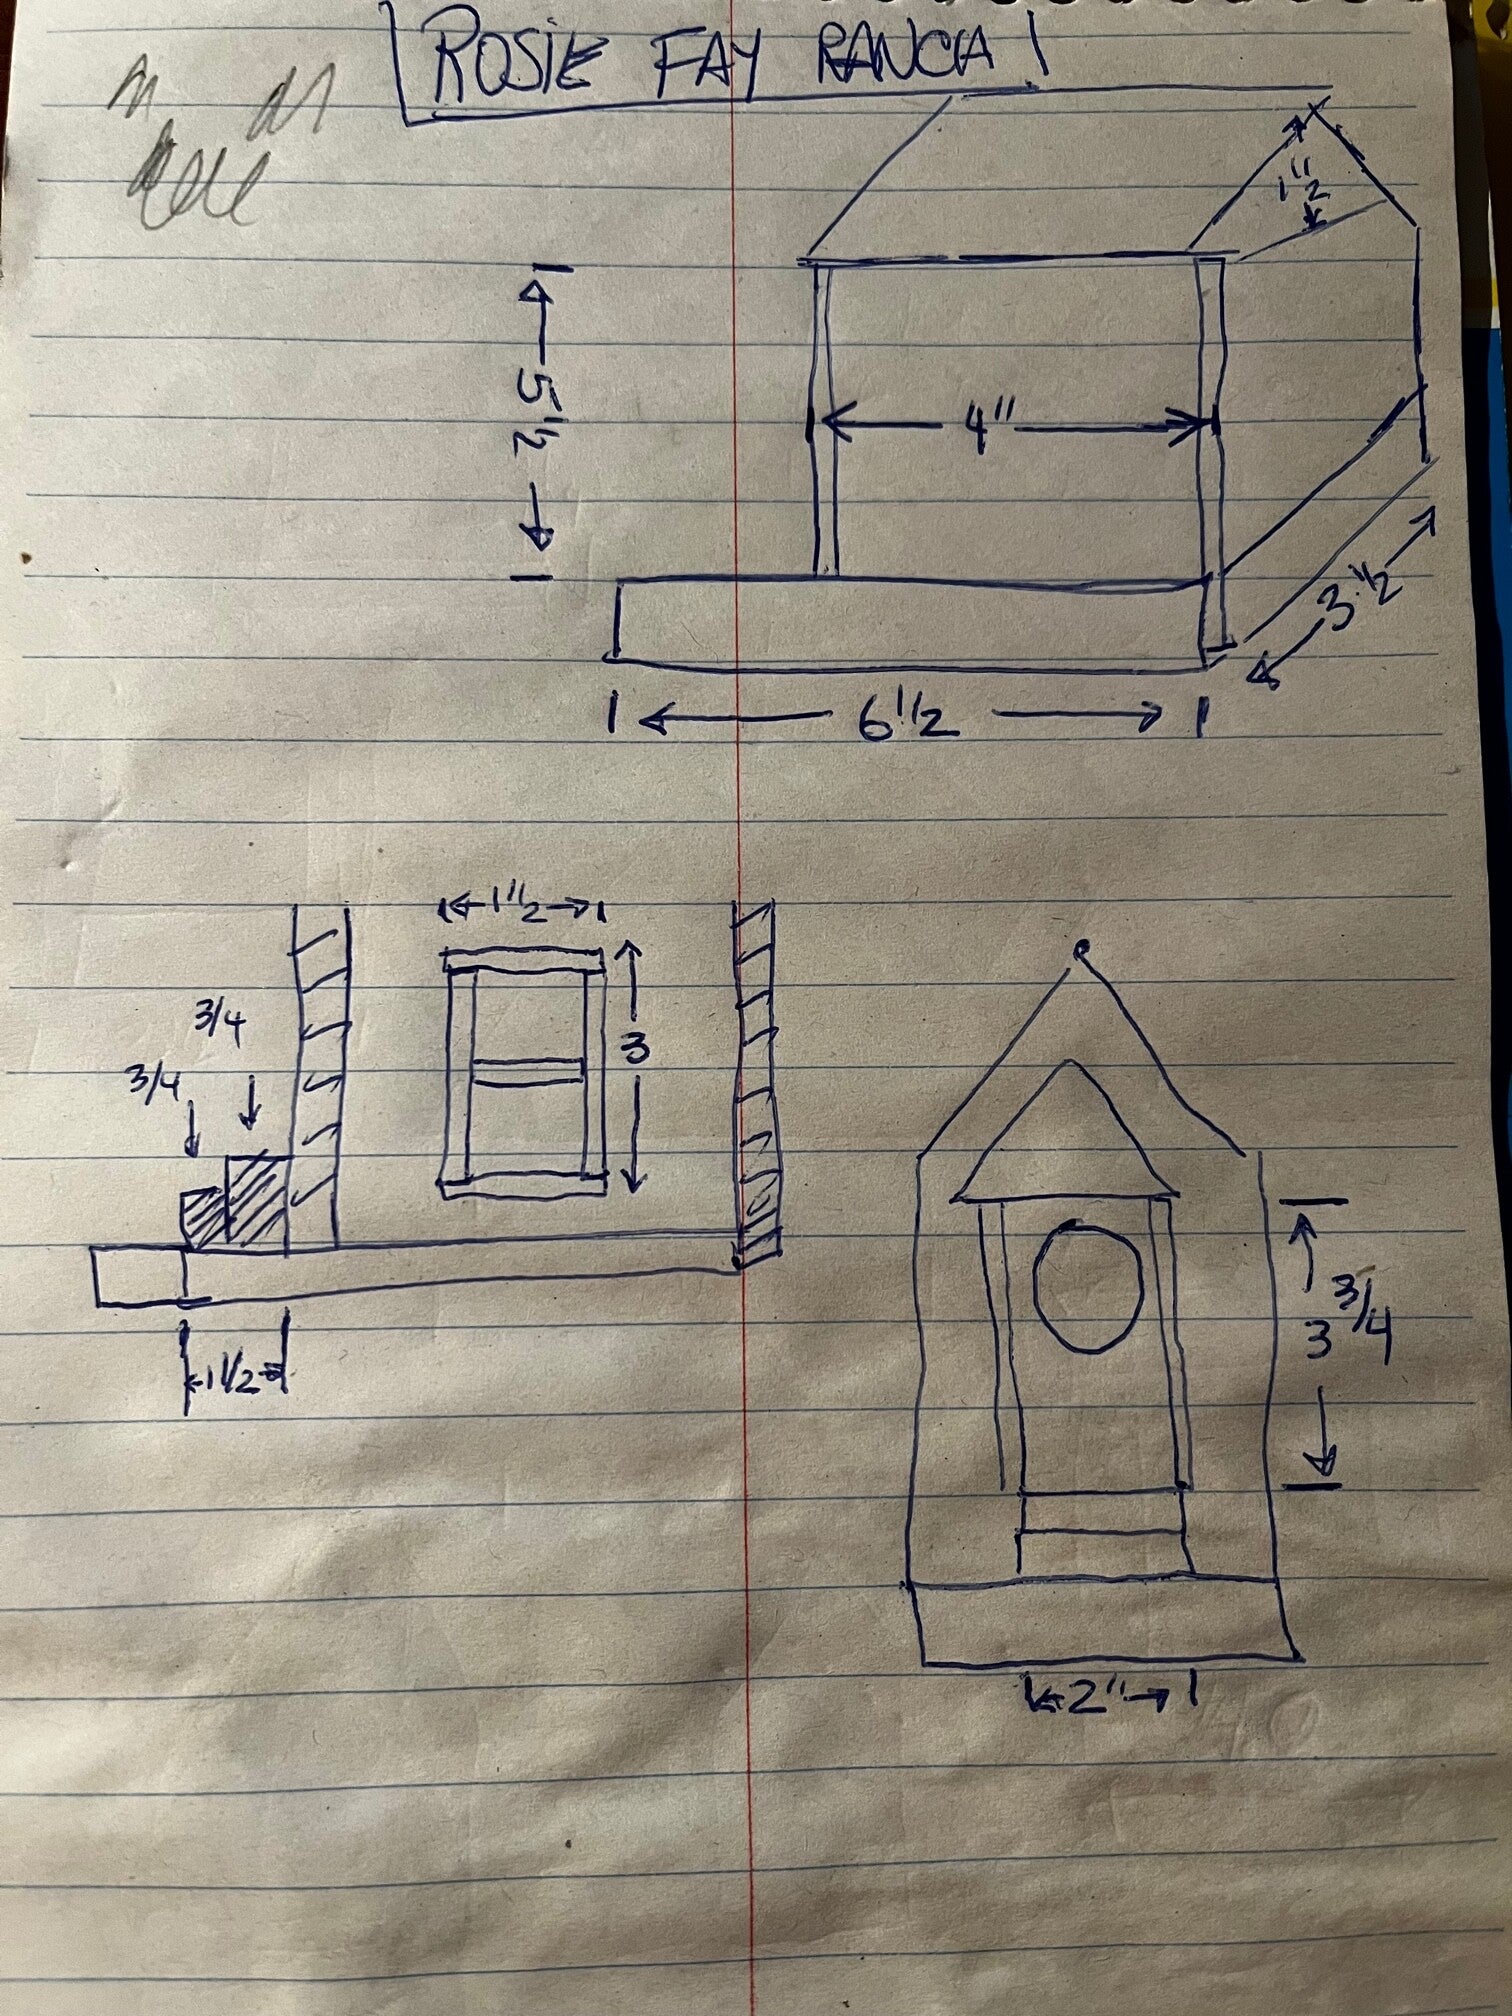 ROSIE FAY RANCIA
1"1/2
5 1/2
4"
3 1/2
6 1/2
1"1/2
3/4
3
3/4
3 3/4
1 1/2
2"